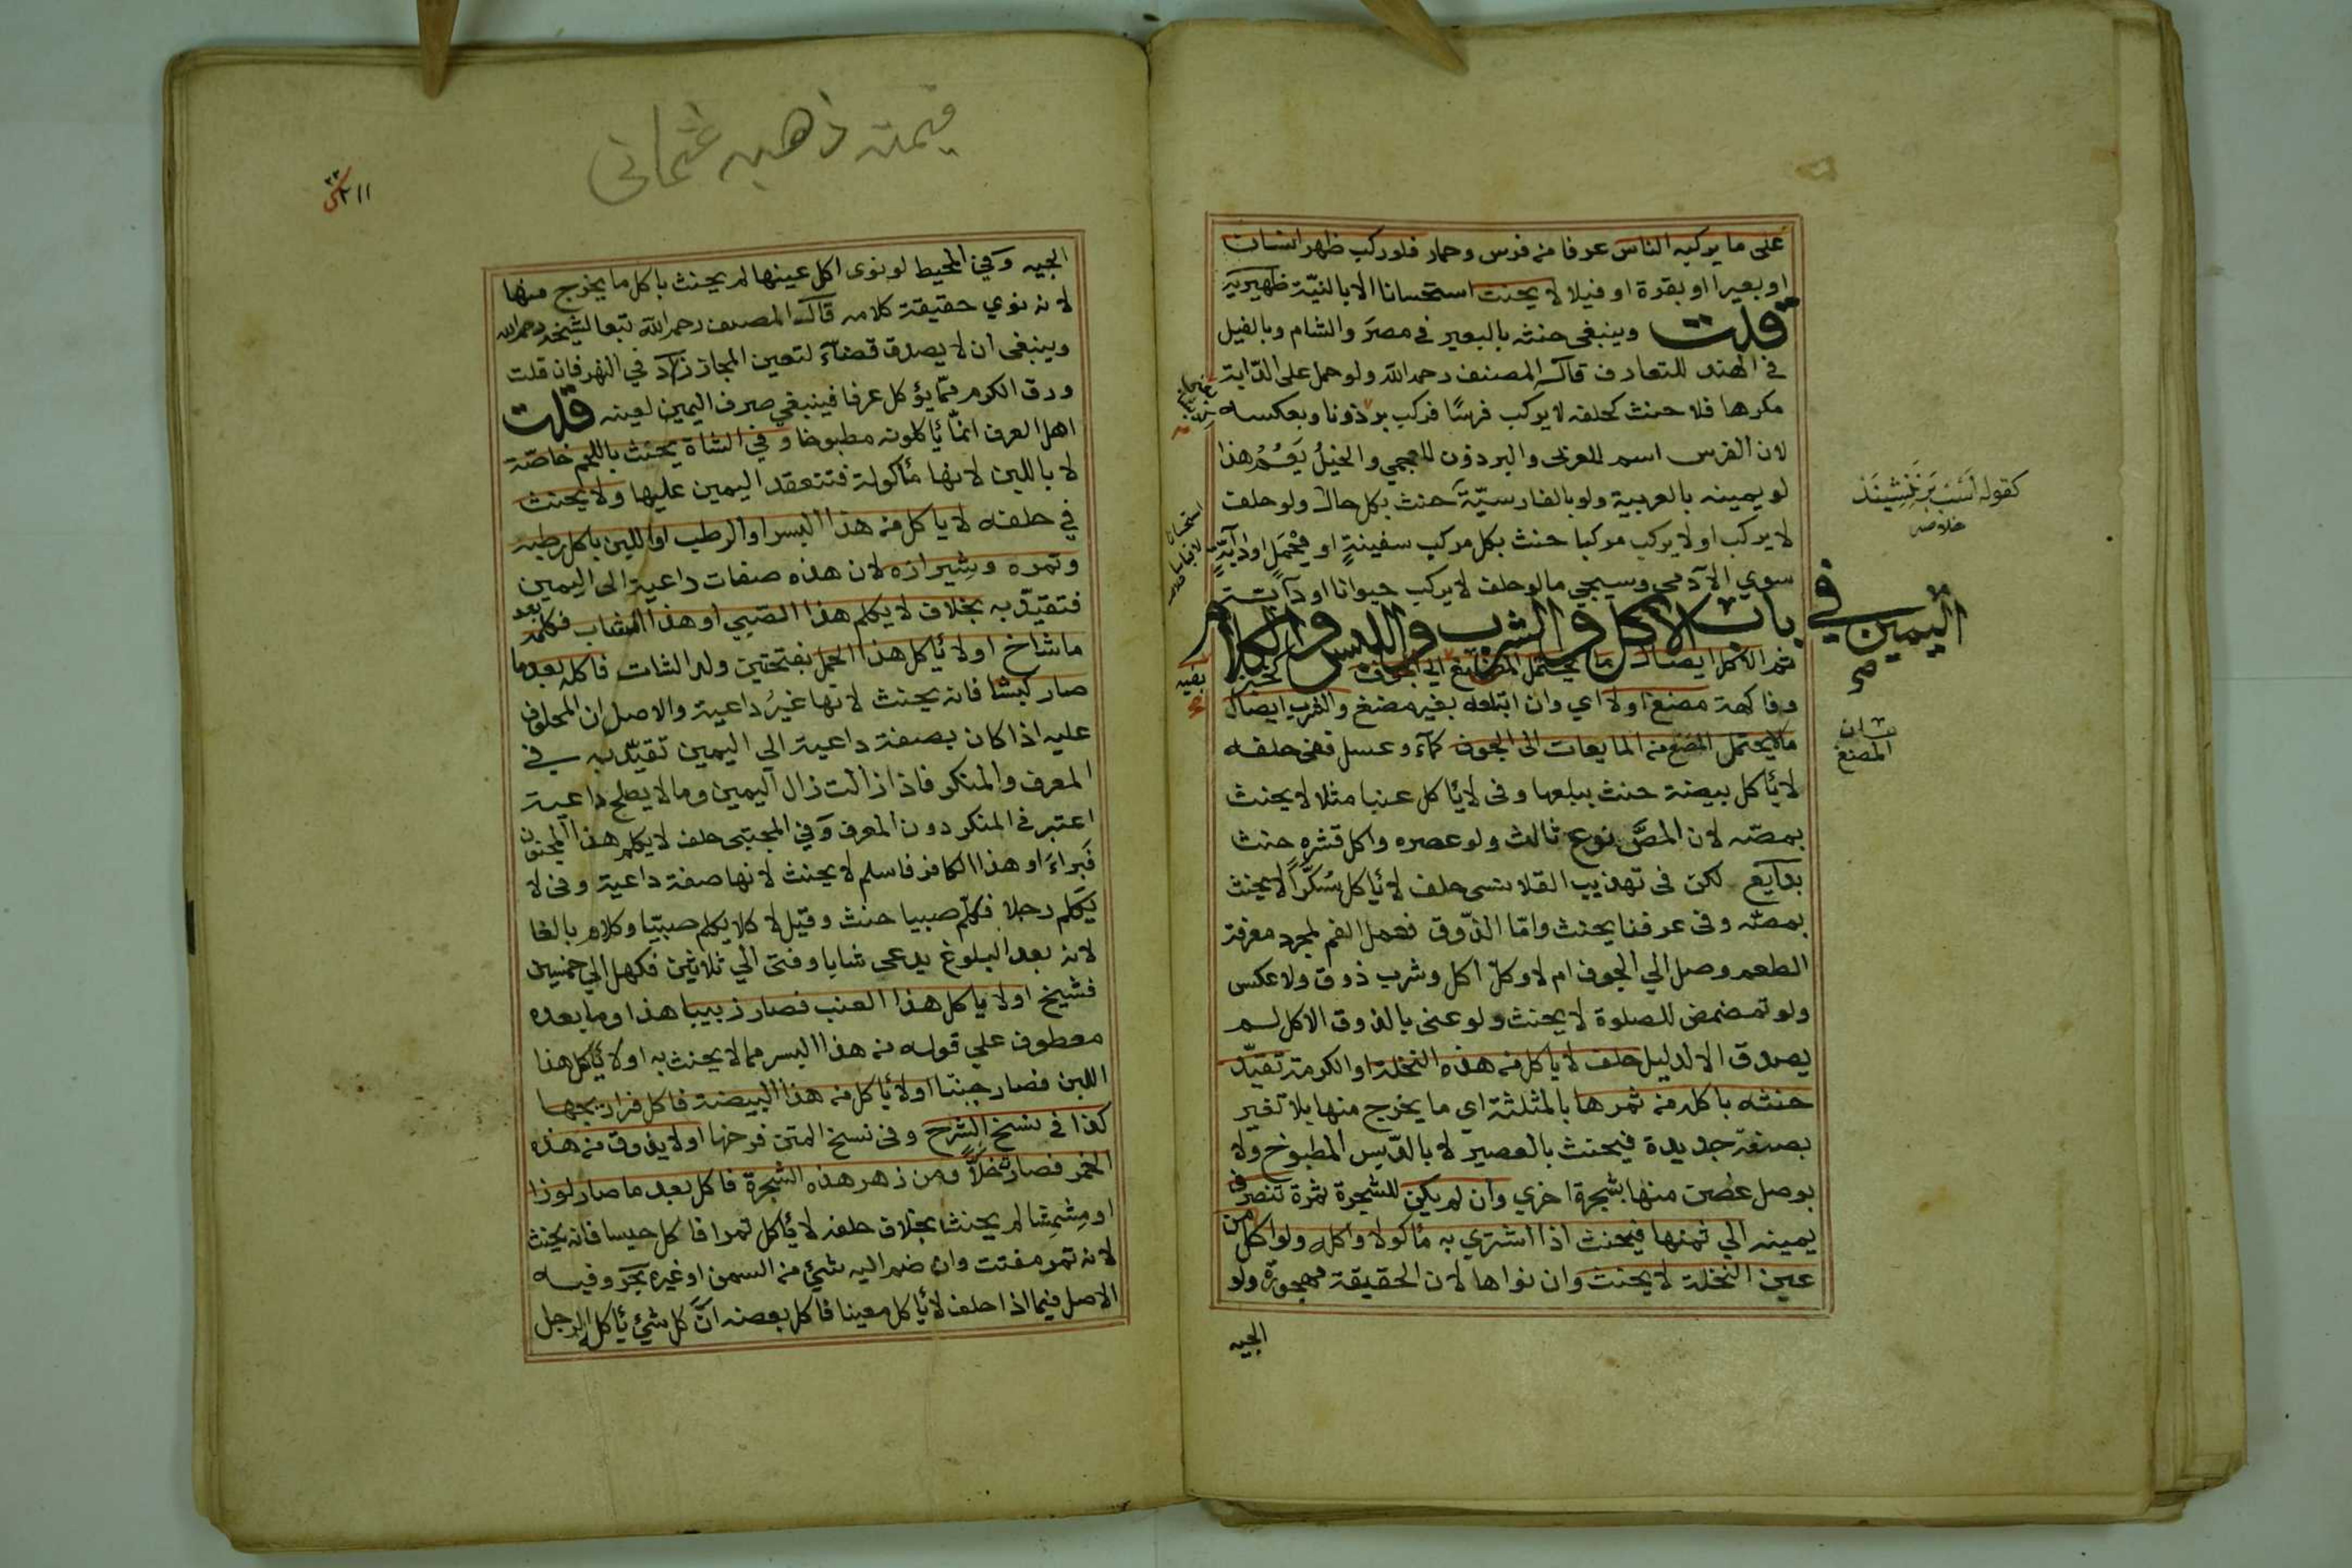 على ما يركبه الناس عرفا من فرس وحمار فلو ركب ظهر انسان
او بعيرا او بقرة او فيلا لا يحنث استحسانا الا بالنيّة ظهيرية
قلت وينبغي حنثه بالبعير في مصر والشام وبالفيل
في الهند للتعارف قاله المصنف رحمه الله ولو حمل على الدّابة
مكرها فلا حنث كحلفه لا يركب فرسًا فركب برذونا وبعكسه
لان الفرس اسم للعربي والبرذون للعجمي والخيل يَعُمُّ هذا
لو يمينه بالعربية ولو بالفارسيّة حنث بكل حال ولو حلف
لا يركب او لا يركب مركبا حنث بكل مركب سفينةٍ او محْمَلٍ او دابّةٍ
سوي الآدمي وسيجي ما لو حلف لا يركب حيوانا او دابة
باب اليمين في الاكل والشرب واللبس والكلام
ثم الاكل ايصال ما يحتمل المضغ الى الجوف كخبز
وفاكهة مضغ او لا اي وان ابتلعه بغير مضغ والشرب ايصال
ما لا يحتمل المضغ من المايعات الى الجوف كماء وعسل ففي حلفه
لا يأكل بيضة حنث ببلعها وفي لا يأكل عنبا مثلا لا يحنث
بمصّه لان المصَّ نوع ثالث ولو عصره واكل قشره حنث
بدايع لكن في تهذيب القلانسى حلف لا يأكل سُكّراً لا يحنث
بمصّه وفي عرفنا يحنث وامّا الذّوق فعمل الفم لمجرد معرفة
الطعم وصل الي الجوف ام لا وكلّ اكل وشرب ذوق ولا عكس
ولو تمضمض للصلوة لا يحنث ولو عنى بالذوق الاكل لم
يصدق الا لدليل حلف لا ياكل من هذه النخلة او الكرمة تقيّد
حنثه باكله من ثمرها بالمثلثة اي ما يخرج منها بلا تغير
بصنعة جديدة فيحنث بالعصير لا بالدّبس المطبوخ ولا
بوصل غصن منها بشجرة اخري وان لم يكن للشجرة ثمرة تنصرف
يمينه الي ثمنها فيحنث اذا اشتري به مأكولا واكله ولو اكل من
عين النخلة لا يحنث وان نواها لان الحقيقة مهجورة ولو
الجيه
كقوله اَسْب بَرْنَنِشِينَد
خلاصه
بيان
المضغ
استحسانا
لا قياسا
بقيه
قيمته ذهبه عثماني
٢١١
الجيه وفي المحيط لو نوى اكل عينها لم يحنث باكل ما يخرج منها
لانه نوي حقيقة كلامه قال المصنف رحمه الله تبعا لشيخه رحمه الله
وينبغي ان لا يصدق قضاءً لتعين المجاز زاد في النهر فان قلت
ورق الكرم ممّا يؤكل عرفا فينبغي صرف اليمين لعينه قلت
اهل العرف انمّا يأكلونه مطبوخا وفي الشاة يحنث باللحم خاصّة
لا باللبن لانها مأكولة فتنعقد اليمين عليها ولا يحنث
في حلفه لا ياكل من هذا البسر او الرطب او اللبن باكل رطبه
وتمره وشيرازه لان هذه صفات داعية الى اليمين
فتقيّد به بخلاف لا يكلم هذا الصّبي او هذا الشاب فكلمه بعد
ما شاخ او لا يأكل هذا الحمل بفتحتين ولد الشات فاكله بعد ما
صار كبشا فانه يحنث لانها غيرُ داعية والاصل ان المحلوف
عليه اذا كان بصفة داعية الي اليمين تقيّد به في
المعرف والمنكر فاذا زالت زال اليمين وما لا يصلح داعية
اعتبر في المنكر دون المعرف وفي المجتبى حلف لا يكلم هذا المجنون
فبراءَ او هذا الكافر فاسلم لا يحنث لانها صفة داعية وفي لا
يكلم رجلا فكلّم صبيا حنث وقيل لا كلا يكلم صبيّا وكلم بالغا
لانه بعد البلوغ يدعى شابا وفتى الي ثلاثين فكهل الي خمسين
فشيخ او لا ياكل هذا العنب فصار زبيبا هذا وما بعده
معطوف علي قوله من هذا البسر مما لا يحنث به او لا يأكل هذا
اللبن فصار جبنّا او لا يأكل من هذا البيضة فاكل فراريجها
كذا في نسخ الشرح وفي نسخ المتن فرخها او لا يذوق من هذه
الخمر فصارت خلاًّ ومن زهر هذه الشجرة فاكل بعد ما صار لوزا
او مشمشا لم يحنث بخلاف حلفه لا يأكل تمرا فاكل حيسا فانه يحنث
لانه تمر مفتت وان ضم اليه شيئ من السمن او غيره بحر وفيه
الاصل فيما اذا حلف لا يأكل معينا فاكل بعضه انّ كل شيئ يأكله الرجل